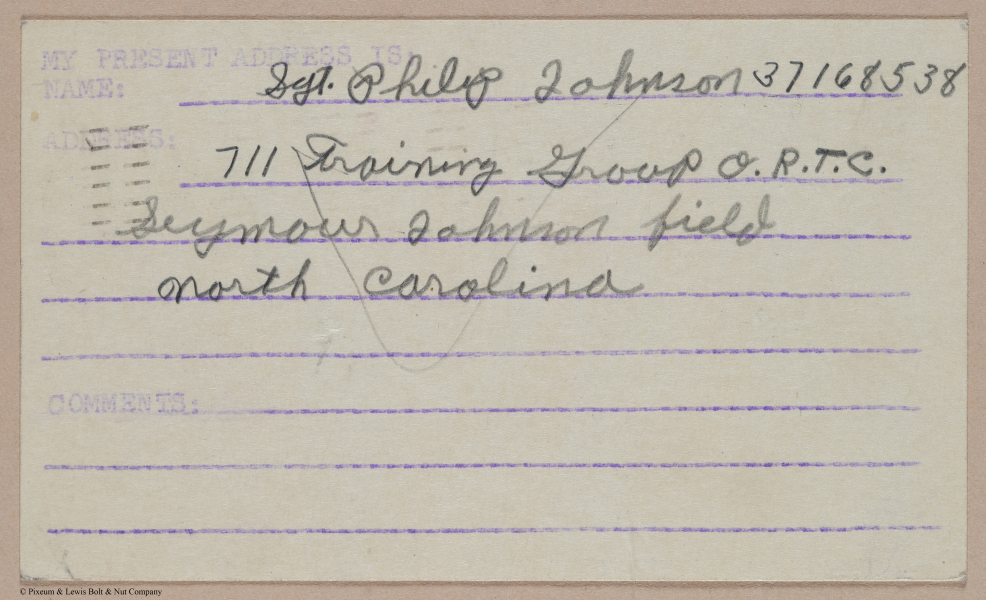 MY PRESENT ADDRESS IS:
NAME: Sgt. Philip Johnson 37168538
ADDRESS: 711 Training Group O.R.T.C.
Seymour Johnson field
North Carolina
COMMENTS:
© Pixeum & Lewis Bolt & Nut Company